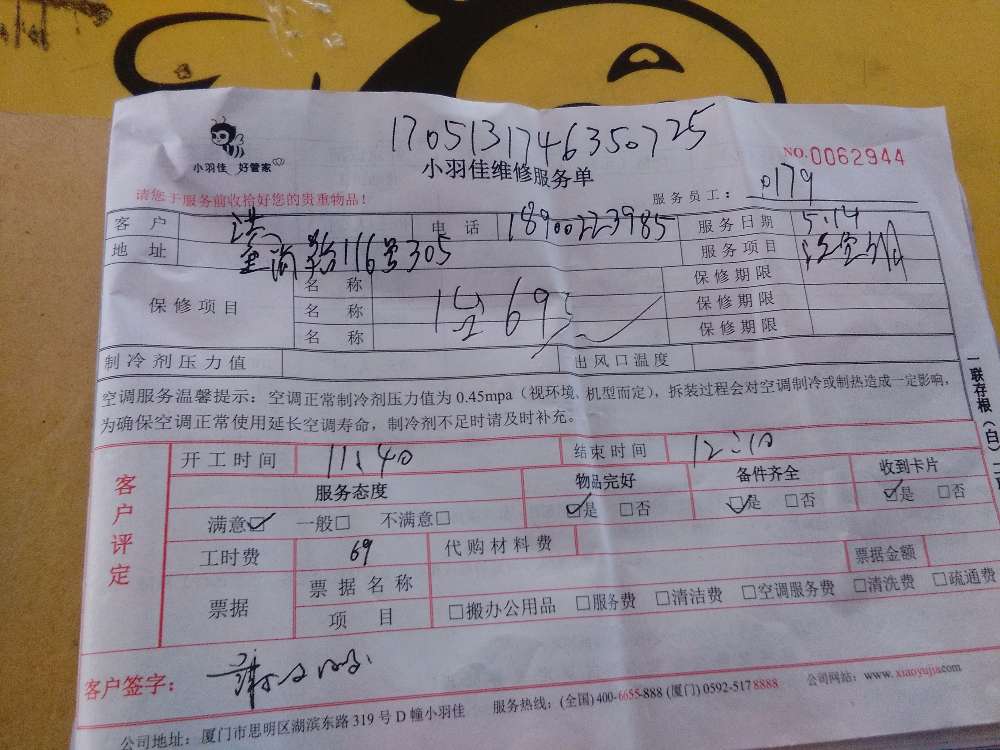 1705131746350725
小羽佳 好管家
小羽佳维修服务单
NO.0062944
请您于服务前收拾好您的贵重物品！
服务员工： 0179
客户 洪 电话 18900223985 服务日期 5.14
地址 116号305 服务项目 洗空调
保修项目 名称 保修期限
名称 69 保修期限
名称 保修期限
制冷剂压力值 出风口温度
空调服务温馨提示：空调正常制冷剂压力值为 0.45mpa（视环境、机型而定），拆装过程会对空调制冷或制热造成一定影响，
为确保空调正常使用延长空调寿命，制冷剂不足时请及时补充。
客户评定
开工时间 11:40 结束时间 12:10
服务态度 物品完好 备件齐全 收到卡片
满意☑ 一般□ 不满意□ ☑是 □否 ☑是 □否 ☑是 □否
工时费 69 代购材料费 票据金额
票据 票据名称
项目 □搬办公用品 □服务费 □清洁费 □空调服务费 □清洗费 □疏通费
客户签字：
公司地址：厦门市思明区湖滨东路 319 号 D 幢小羽佳 服务热线：(全国) 400-6655-888 (厦门) 0592-517 8888 公司网站：www.xiaoyujia.com
一联存根（白）二